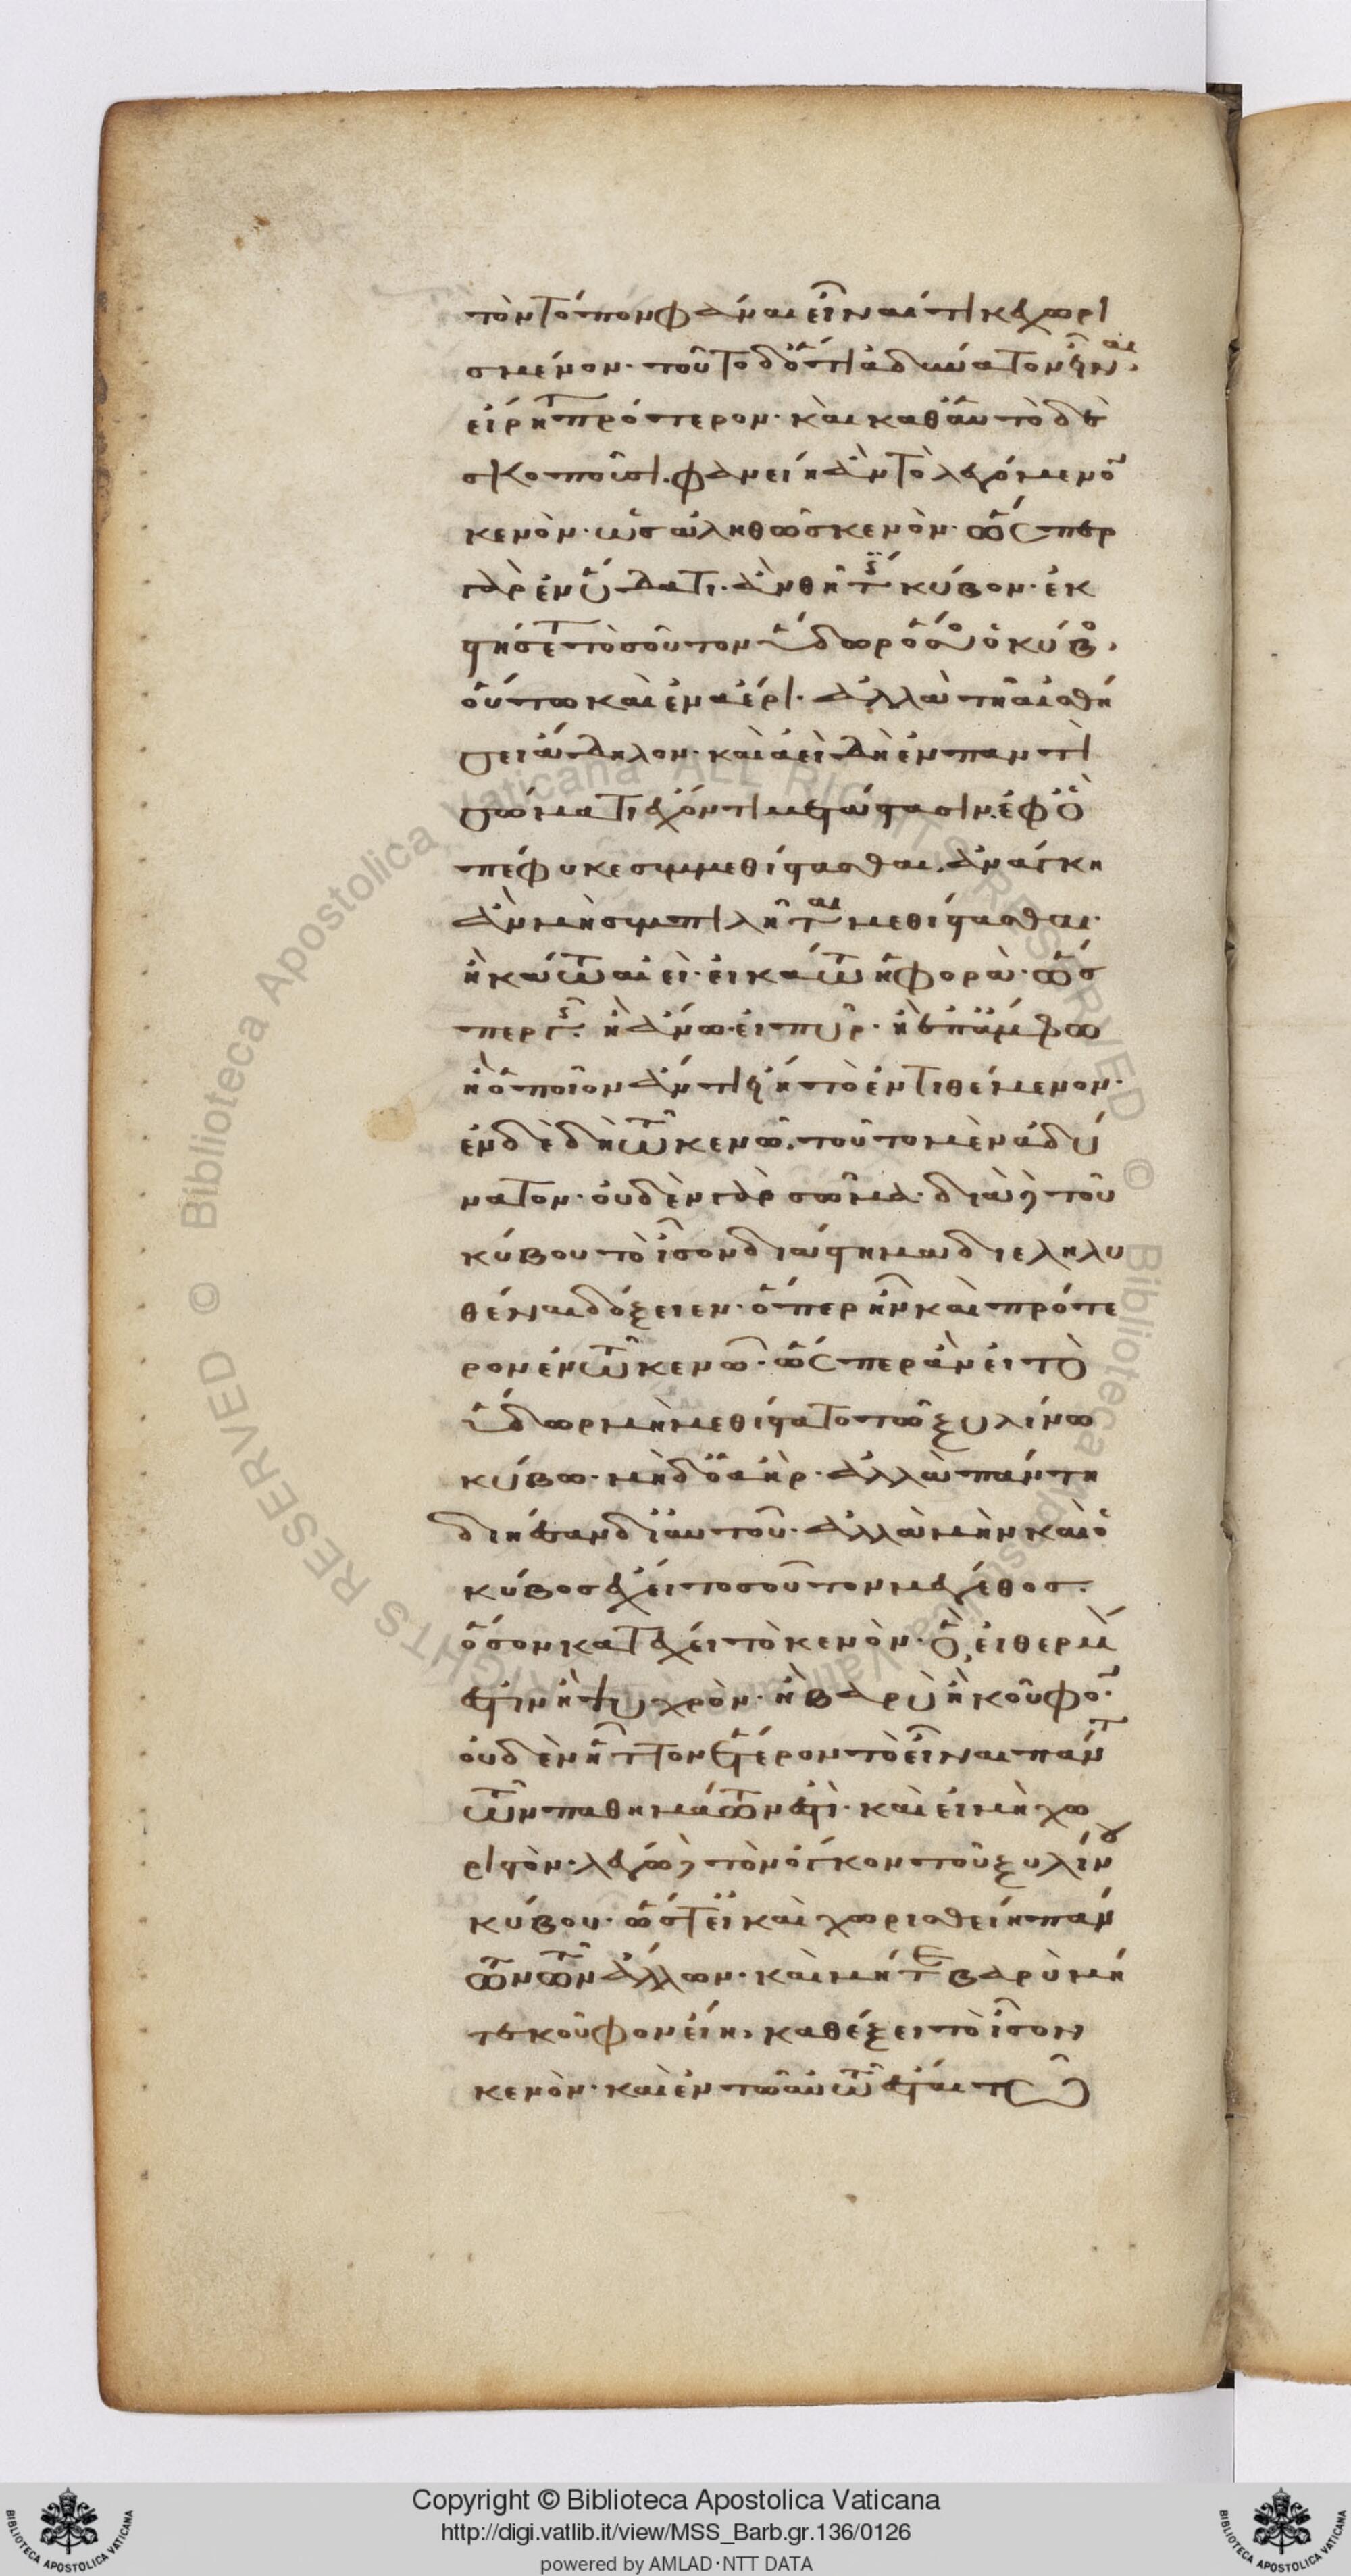 τὸν τόπον φάναι εἶναί τι κεχωρι
σμένον· τοῦτο δ' ὅτι ἀδύνατον εἶναι,
εἴρηται πρότερον· καὶ καθ' αὑτὸ δὲ
σκοποῦσι. φανείη ἂν τὸ λεγόμενον
κενὸν· ὡς ἀληθῶς κενὸν· ὥσπερ
γὰρ ἐν ὕδατι. ἂν θῇ τις κύβον· ἐκ
στήσεται τοσοῦτον ὕδωρ ὅσος ὁ κύβος,
οὕτω καὶ ἐν ἀέρι· ἀλλὰ τῇ αἰσθή
σει ἄδηλον· καὶ ἀεὶ δὴ ἐν παντὶ
σώματι ἔχοντι μετάστασιν· ἐφ' ὃ
πέφυκε συμμεθίστασθαι, ἀνάγκη
ἂν μὴ συμπιλῆται μεθίστασθαι·
ἢ κάτω αἰεὶ· εἰ κάτω ἡ φορὰ· ὥσ
περ γῆς· ἢ ἄνω· εἰ πῦρ· ἢ ἐπ' ἄμφω
ἢ ὁποῖον ἄν τι ᾖ τὸ ἐντιθέμενον·
ἐν δὲ δὴ τῷ κενῷ. τοῦτο μὲν ἀδύ
νατον· οὐδὲν γὰρ σῶμα· διὰ δὲ τοῦ
κύβου τὸ ἴσον διάστημα διεληλυ
θέναι δόξειεν· ὅπερ ἦν καὶ πρότε
ρον ἐν τῷ κενῷ· ὥσπερ ἂν εἰ τὸ
ὕδωρ μὴ μεθίστατο τῷ ξυλίνῳ
κύβῳ· μὴ δ' ὁ ἀὴρ· ἀλλὰ πάντῃ
διῄεσαν δι' αὐτοῦ· ἀλλὰ μὴν καὶ ὁ
κύβος ἔχει τοσοῦτον μέγεθος·
ὅσον κατέχει τὸ κενὸν· ὃ, εἰ θερμὸν
ἐστιν ἢ ψυχρὸν· ἢ βαρὺ ἢ κοῦφον·
οὐδὲν ἧττον ἕτερον τὸ εἶναι πάντων
τῶν παθημάτων ἐστὶ· καὶ εἰ μὴ χω
ριστὸν· λέγω δὲ τὸν ὄγκον τοῦ ξυλίνου
κύβου· ὥστ' εἰ καὶ χωρισθείη πάν
των τῶν ἄλλων· καὶ μήτε βαρὺ μή
τε κοῦφον εἴη, καθέξει τὸ ἴσον
κενὸν· καὶ ἐν τῷ αὐτῷ ἔσται τῷ